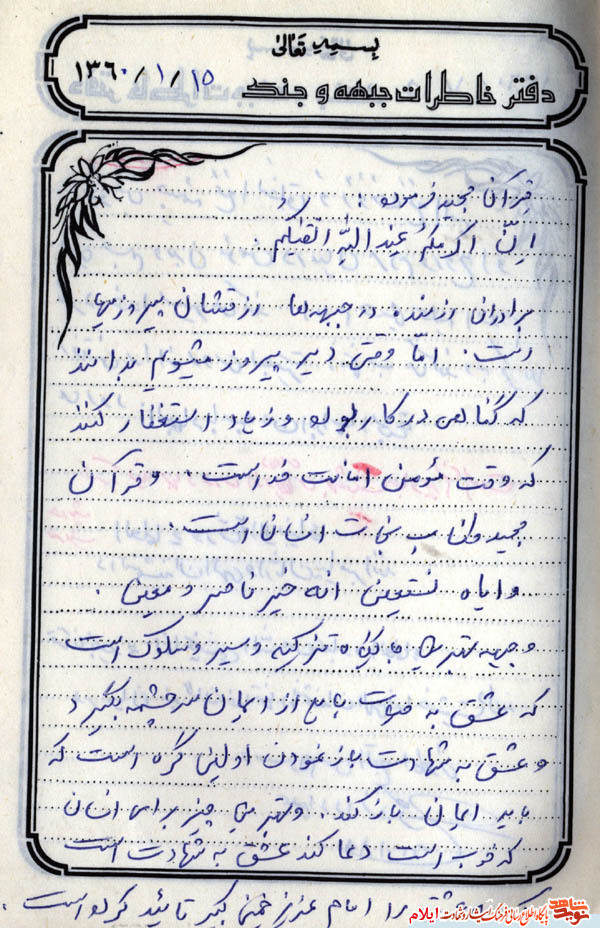 بسمه تعالی
۱۳۶۰/۱/۱۵
دفتر خاطرات جبهه و جنگ
قرآن مجید فرموده:
ان اکرمکم عندالله اتقیکم
برادران رزمنده در جبهه‌ها رزقشان پیروزیها
است. اما وقتی دیر پیروز میشویم بدانند
که گناهی در کار بوده و زیاد استغفار کنند
که وقت مؤمن امانت خداست. و قرآن
مجید نجات انسان است.
وایاه نستعین انه خیر ناصر و معین.
و جبهه بهترین جایگاه تزکیه و سیر و سلوک است
که عشق به باید از ایمان سرچشمه بگیرد
و عشق به شهادت باز نمودن اولین گره است که
باید ایمان باز کند. و بهترین چیز برای انسان
که خوب است دعا کند عشق به شهادت است
را امام عزیز خمینی کبیر تائید کرده است.
نوید شاهد
پایگاه اطلاع رسانی فرهنگ ایثار و شهادت ایلام